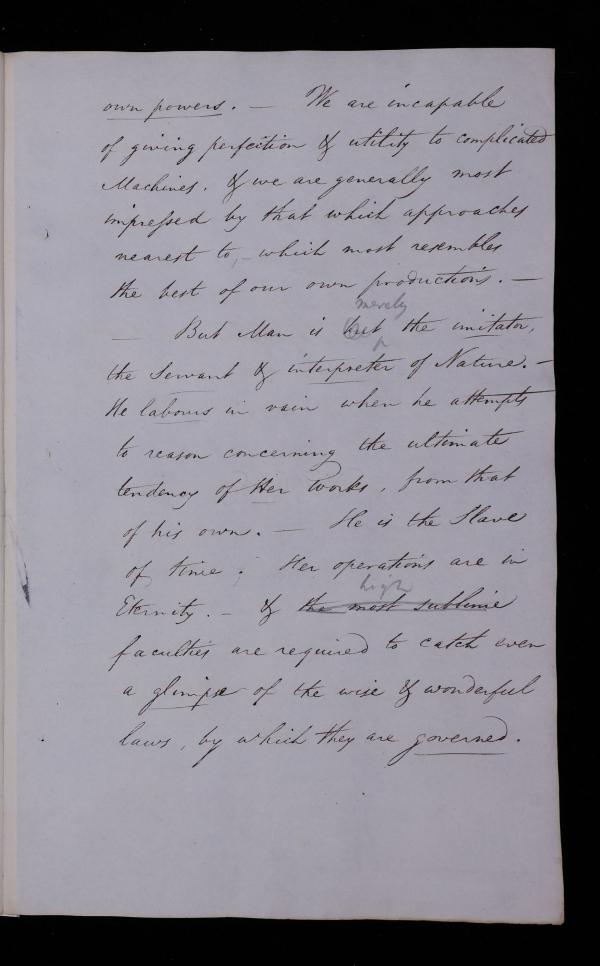 own powers. — We are incapable
of giving perfection & utility to complicated
Machines. & we are generally most
impressed by that which approaches
nearest to, — which most resembles
the best of our own productions. —
merely
— But Man is but the imitator,
the Servant & interpreter of Nature. —
He labours in vain when he attempts
to reason concerning the ultimate
tendency of Her works, from that
of his own. — He is the Slave
of time; Her operations are in
high
Eternity. — & the most sublime
faculties are required to catch even
a glimpse of the wise & wonderful
laws, by which they are governed.